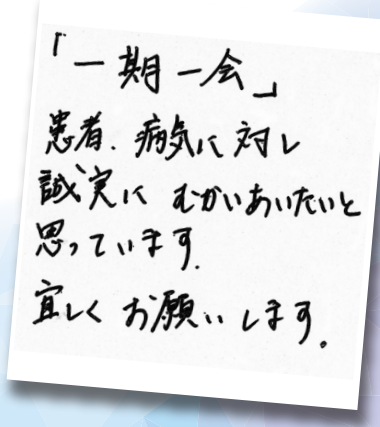 「一期一会」
患者、病気に対し
誠実に むかいあいたいと
思っています.
宜しく お願いします。